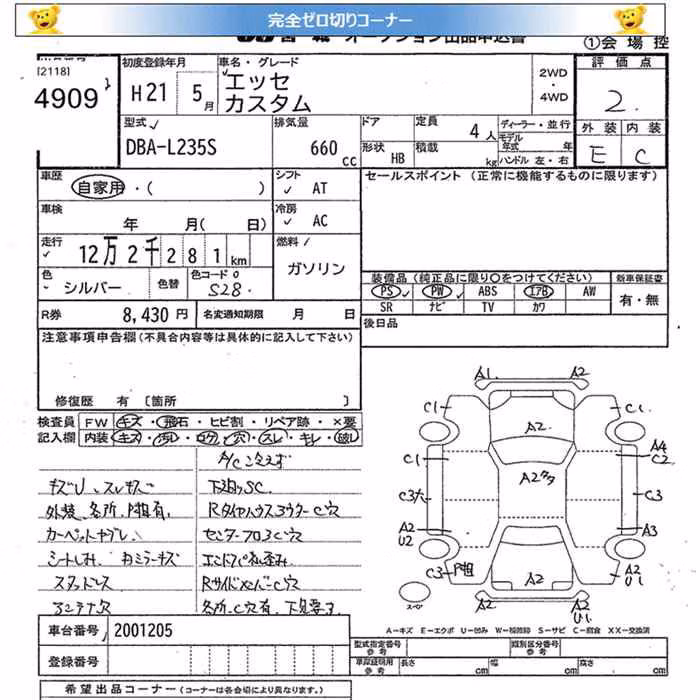 完全ゼロ切りコーナー
オークション出品申込書
①会場控
[2118]
4909
初度登録年月
H21 5月
車名・グレード
エッセ
カスタム
2WD
・
4WD
評価点
2.
外装 内装
E C
型式
DBA-L235S
排気量
660 cc
ドア
形状 HB
定員 4人
積載 kg
ディーラー・並行
モデル年式 年
ハンドル 左・右
車歴
自家用・( )
シフト
AT
セールスポイント (正常に機能するものに限ります)
車検
年 月( 日)
冷房
AC
走行
12万2千281km
燃料
ガソリン
色
シルバー
色替
色コード
S28
装備品(純正品に限り○をつけてください)
新車保証書
PS PW ABS エアB AW
SR ナビ TV カワ
有・無
R券 8,430円
名変通知期限 月 日
後日品
注意事項申告欄(不具合内容等は具体的に記入して下さい)
修復歴 有 〔箇所 〕
検査員記入欄
FW キズ・飛石・ヒビ割・リペア跡・×要
内装 キズ・汚れ・コゲ・穴・スレ・キレ・破レ
A/Cコンえず
キズU、スレキズ
下廻りSC
外装、各所、P粗有、
RタイヤハウスヨウラーC穴
センターフロアC穴
シートしみ、Rミラーキズ
スタッドレス
アンテナ欠
各所、C穴有、下見要す
A1 A2
C1 C1
A2
A4
C1 C2
A2タタ
C3穴 C3
A2
U2
A3
C3 P粗
A2
A2
U1
A2
U1
スペア
A−キズ E−エクボ U−凹み W−補修跡 S−サビ C−腐食 XX−交換済
車台番号 2001205
登録番号
型式指定番号
参考
類別区分番号
参考
車庫証明用
参考
長さ cm 幅 cm 高さ cm
希望出品コーナー(コーナーは各会場により異なります。)